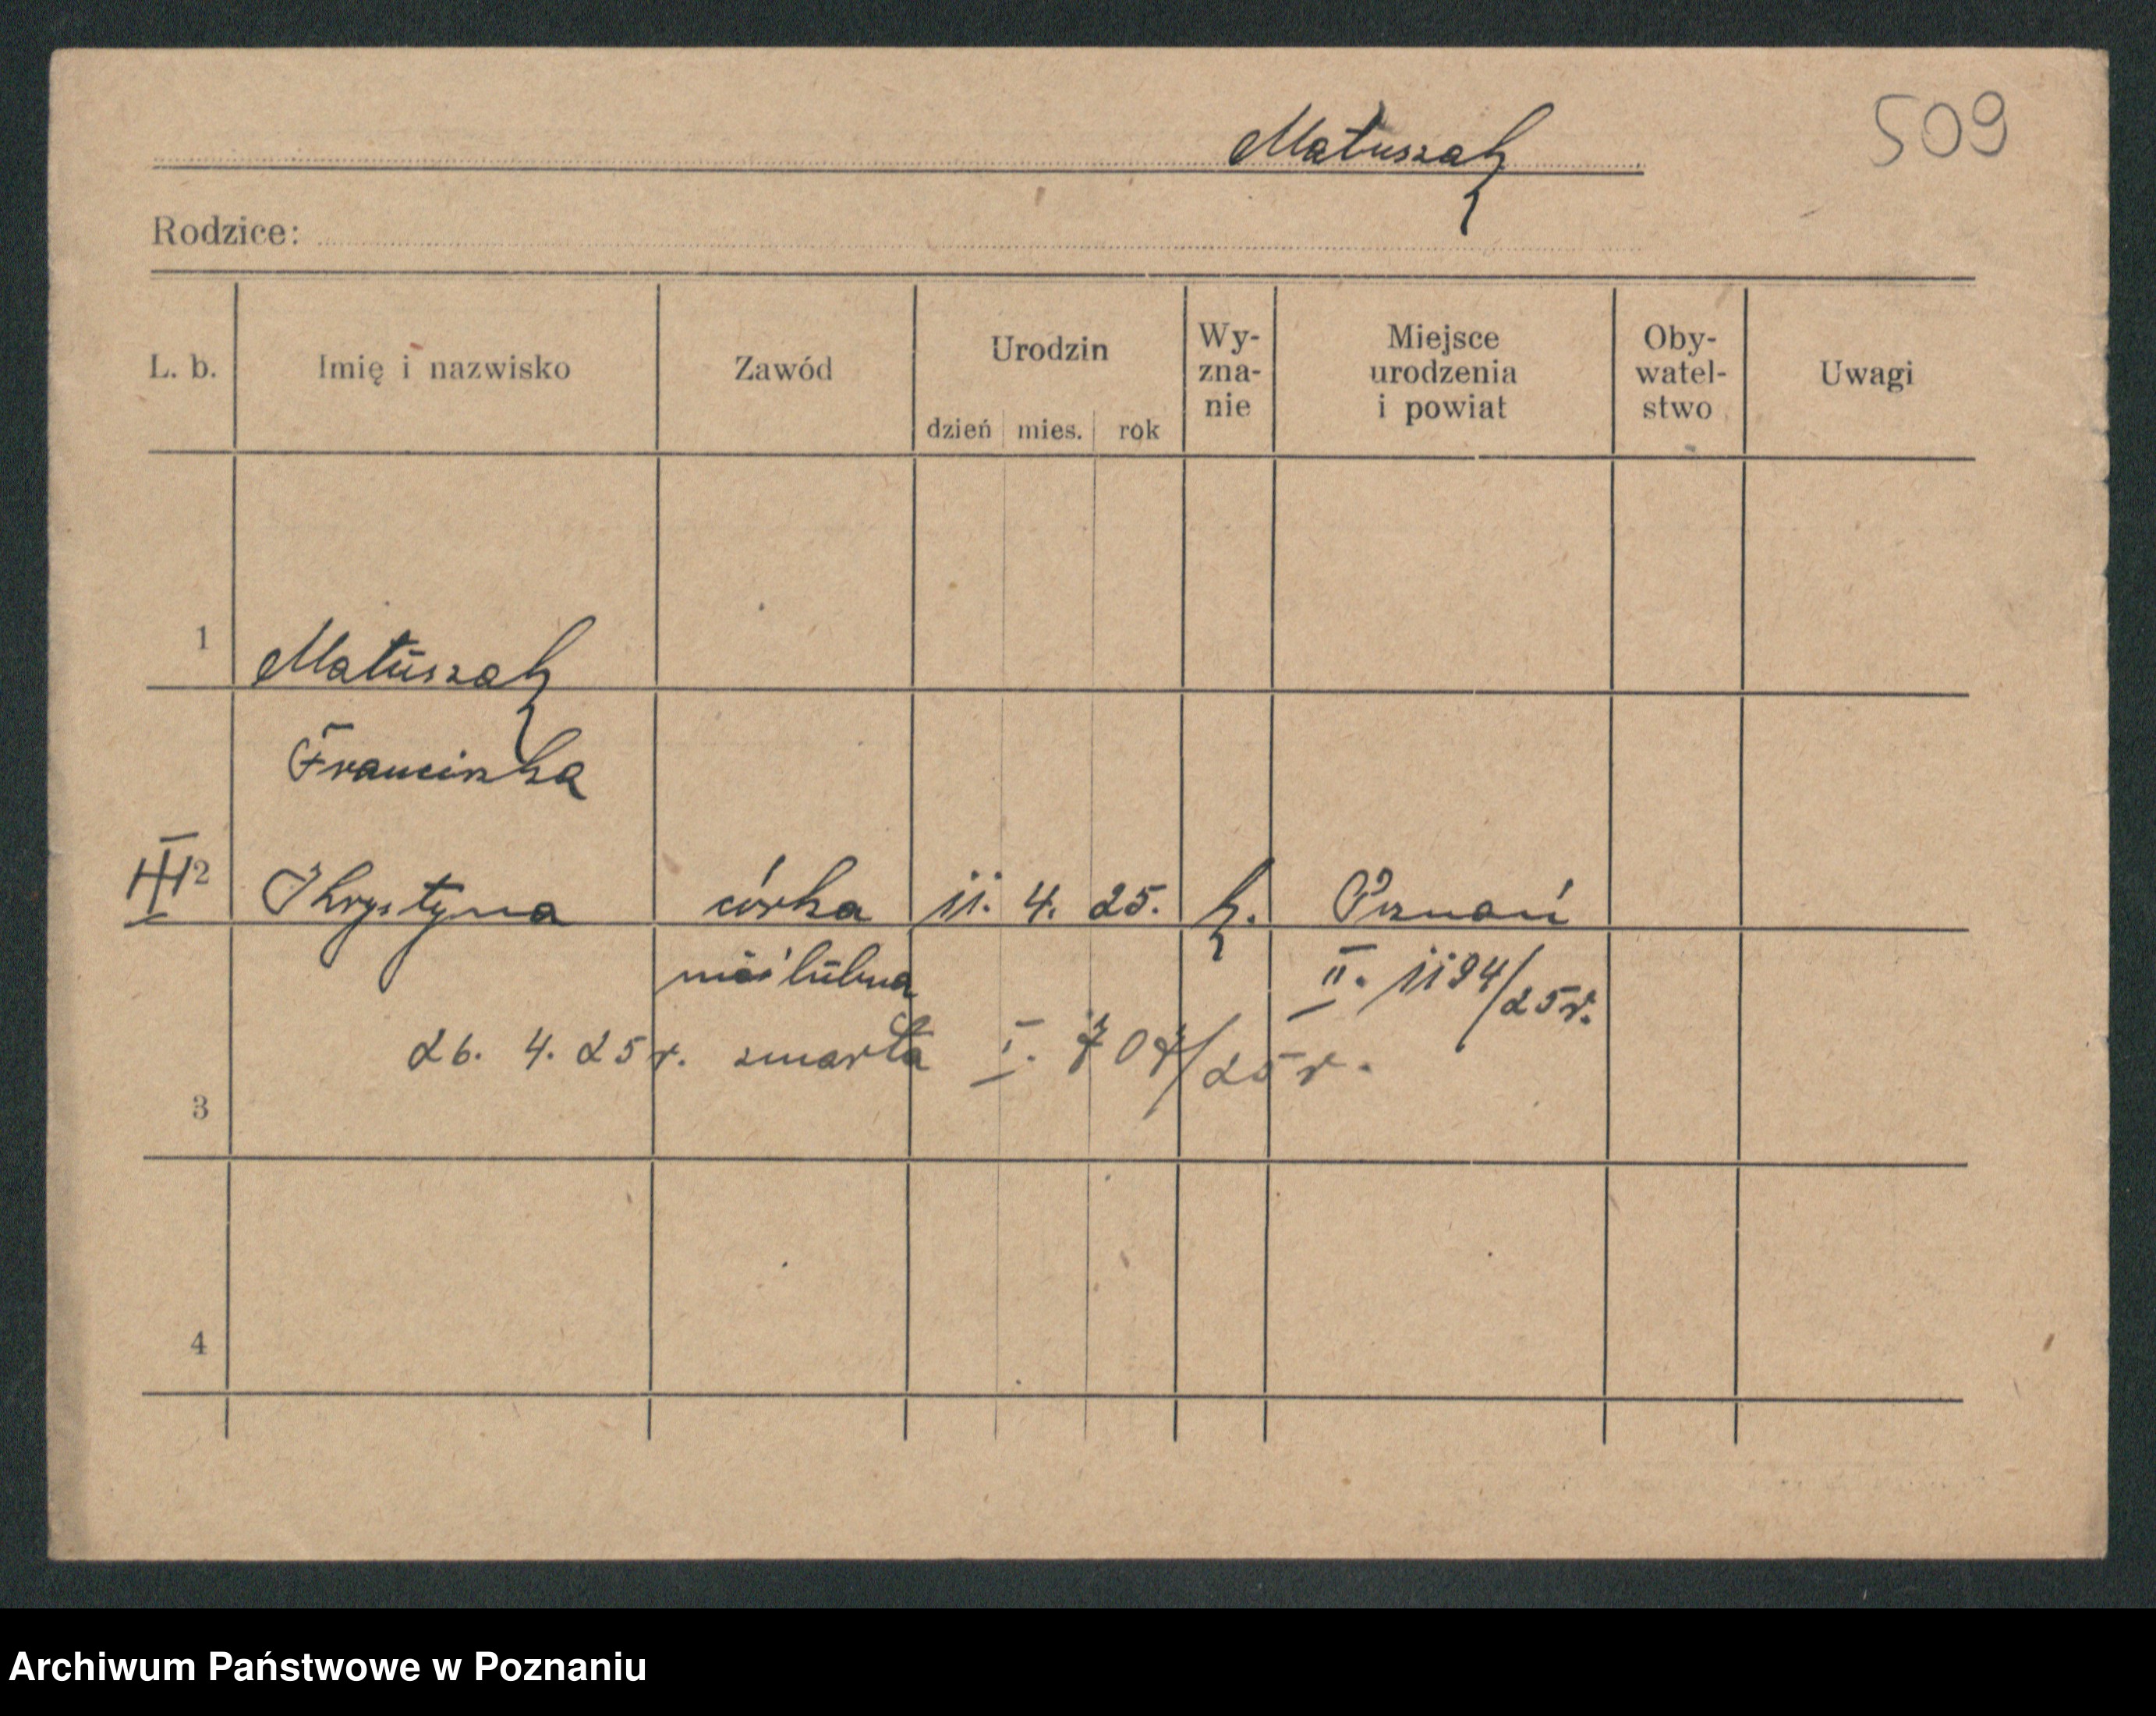 Matuszak
509
Rodzice:
L. b.
Imię i nazwisko
Zawód
Urodzin
dzień mies. rok
Wy-
zna-
nie
Miejsce
urodzenia
i powiat
Oby-
watel-
stwo
Uwagi
1 Matuszak
Franciszka
III 2 Krystyna córka 11. 4. 25. k. Poznań
nieślubna II. 1194/25r.
26. 4. 25r. zmarła I. 707/25r.
3
4
Archiwum Państwowe w Poznaniu